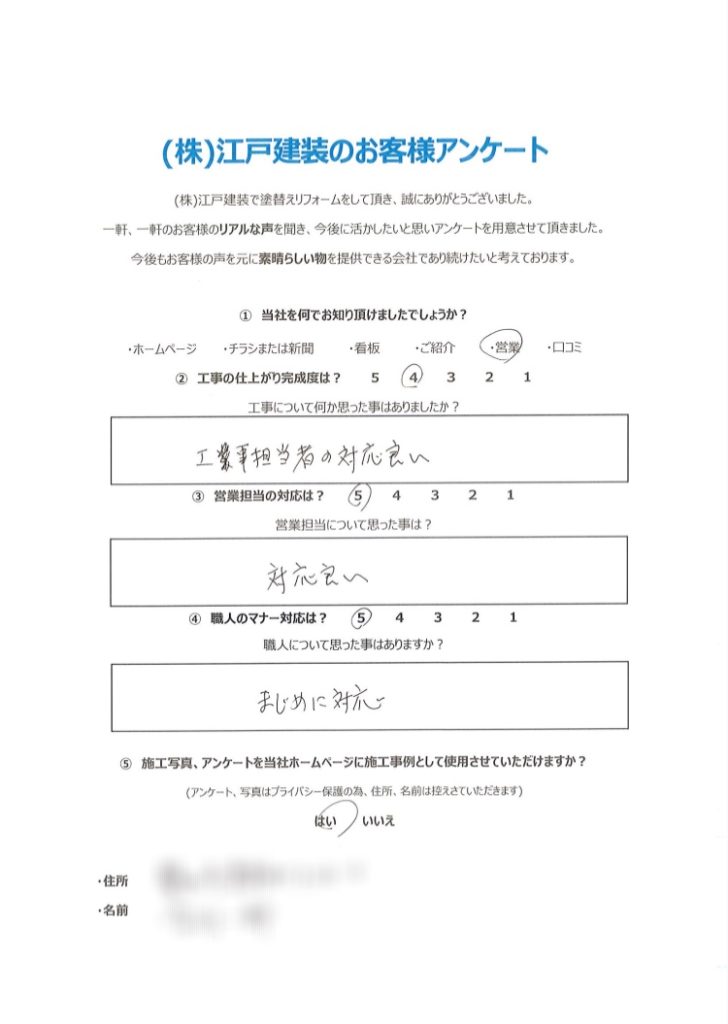 (株)江戸建装のお客様アンケート
(株)江戸建装で塗替えリフォームをして頂き、誠にありがとうございました。
一軒、一軒のお客様のリアルな声を聞き、今後に活かしたいと思いアンケートを用意させて頂きました。
今後もお客様の声を元に素晴らしい物を提供できる会社であり続けたいと考えております。
① 当社を何でお知り頂けましたでしょうか？
・ホームページ ・チラシまたは新聞 ・看板 ・ご紹介 ・営業 ・口コミ
② 工事の仕上がり完成度は？ 5 4 3 2 1
工事について何か思った事はありましたか？
工事担当者の対応良い
③ 営業担当の対応は？ 5 4 3 2 1
営業担当について思った事は？
対応良い
④ 職人のマナー対応は？ 5 4 3 2 1
職人について思った事はありますか？
まじめに対応
⑤ 施工写真、アンケートを当社ホームページに施工事例として使用させていただけますか？
(アンケート、写真はプライバシー保護の為、住所、名前は控えさていただきます)
はい いいえ
・住所
・名前